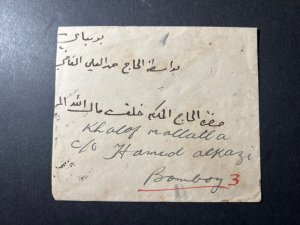 بومباي
بواسطة الحاج حمد العلي القاضي
خلف مال الله
Khalaf mallalla
c/o Hamed alkazi
Bombay 3